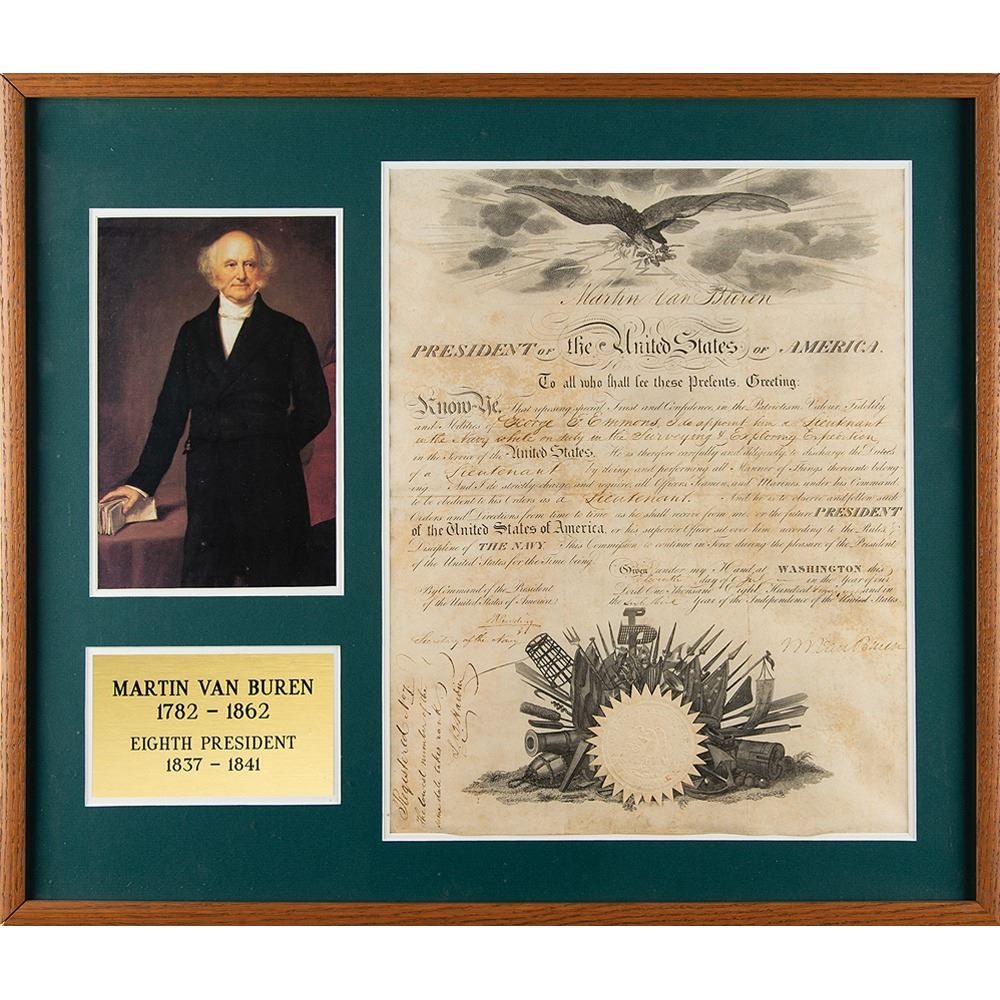 MARTIN VAN BUREN
1782 – 1862
EIGHTH PRESIDENT
1837 – 1841
Martin Van Buren
PRESIDENT OF the United States OF AMERICA.
To all who shall see these Presents, Greeting:
Know Ye, That reposing special Trust and Confidence in the Patriotism, Valour, Fidelity,
and Abilities of George F. Emmons, I do appoint him a Lieutenant
in the Navy while on duty in the Surveying & Exploring Expedition
in the Service of the United States. He is therefore carefully and diligently to discharge the Duties
of a Lieutenant by doing and performing all Manner of Things thereunto belong-
ing. And I do strictly charge and require all Officers, Seamen, and Marines, under his Command,
to be obedient to his Orders as a Lieutenant. And he is to observe and follow such
Orders and Directions from time to time as he shall receive from me, or the future PRESIDENT
of the United States of America, or his superior Officer set over him according to the Rules &
Discipline of THE NAVY. This Commission to continue in Force during the pleasure of the President
of the United States for the Time being.
Given under my Hand at WASHINGTON this
day of in the Year of our
Lord One Thousand Eight Hundred and in
the Year of the Independence of the United States.
By Command of the President
of the United States of America.
Secretary of the Navy
M Van Buren
Registered No 7
The lowest number of the
same date takes rank